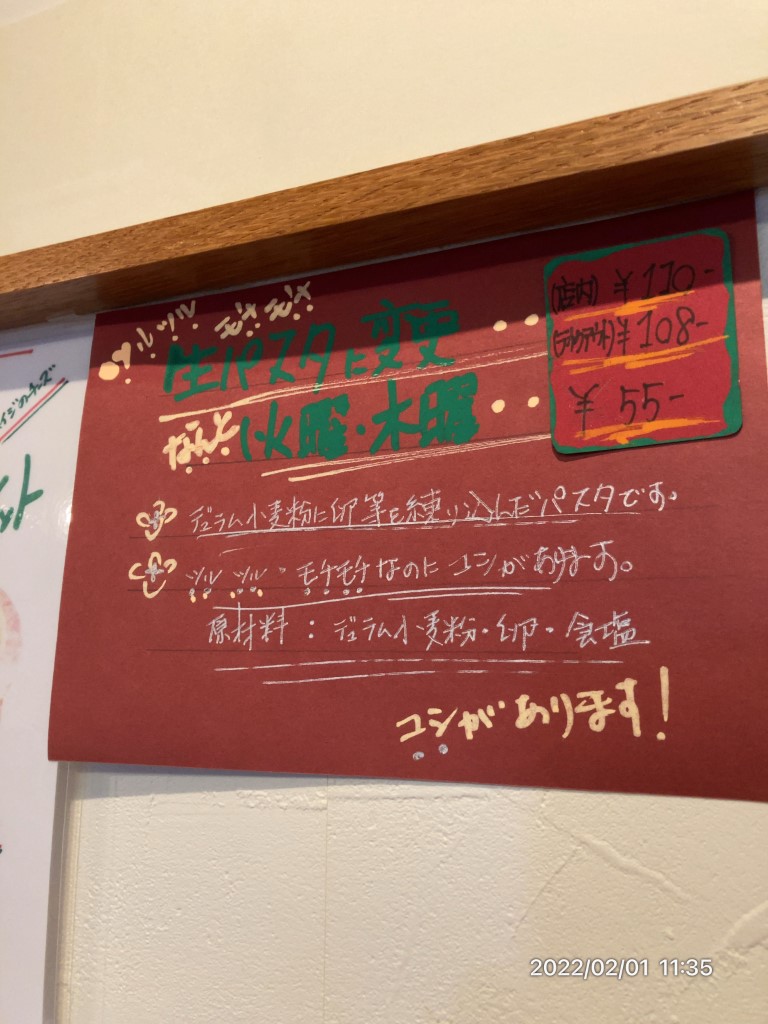 ツルツル モチモチ
生パスタに変更
なんと火曜・木曜
(店内) ¥110-
(テイクアウト) ¥108-
¥55-
デュラム小麦粉に卵等を練り込んだパスタです。
ツルツル・モチモチなのにコシがあります。
原材料：デュラム小麦粉・卵・食塩
コシがあります！
2022/02/01 11:35